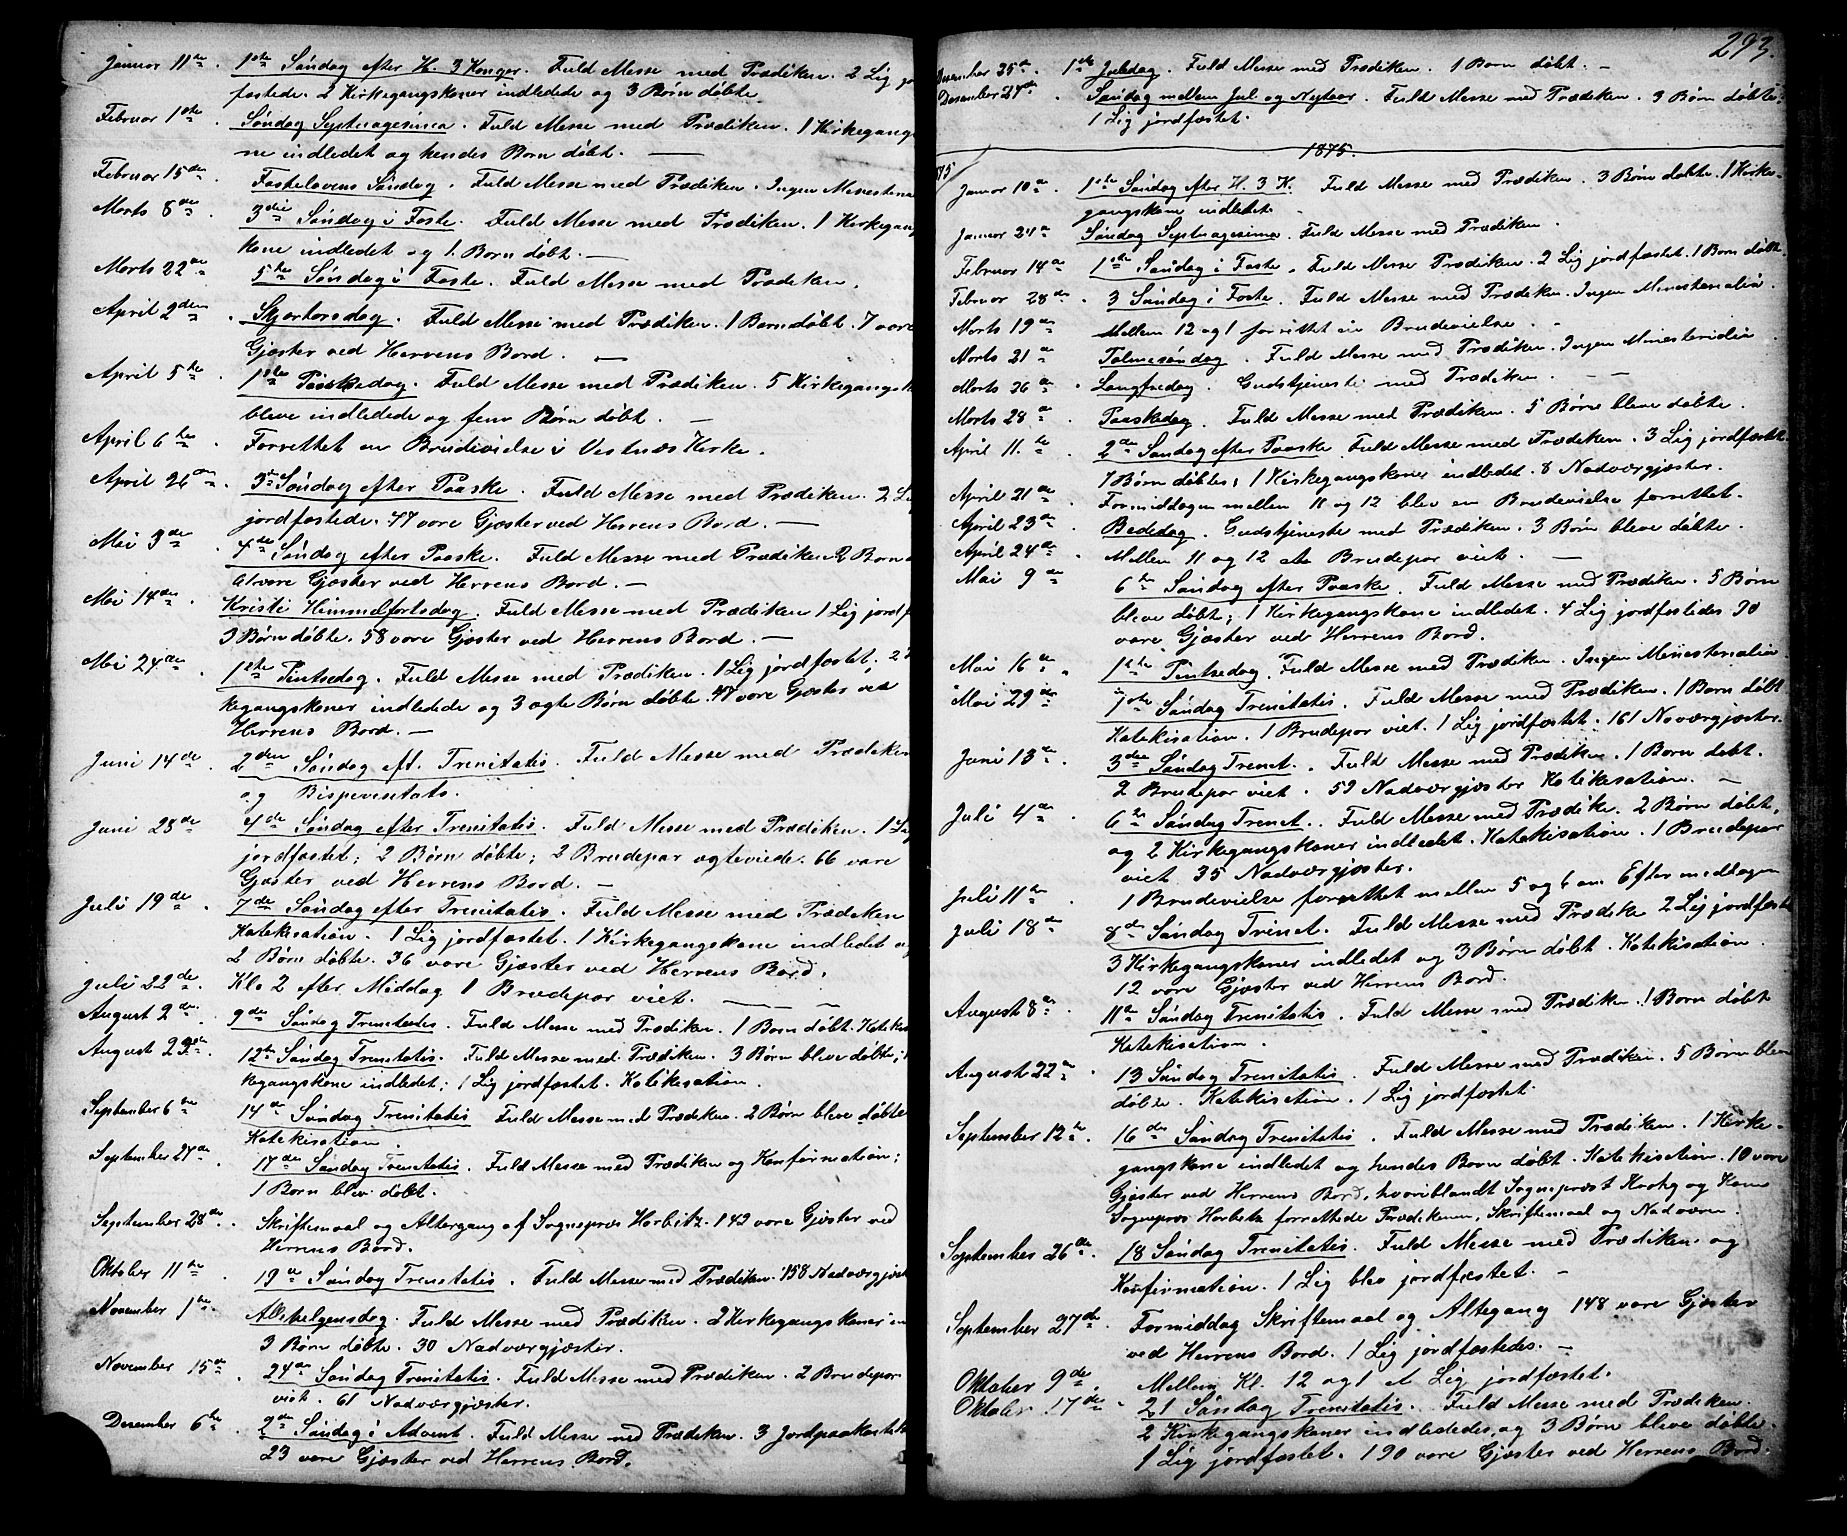 Januar 11te. 1ste Søndag efter H. 3 Konger. Fuld Messe med Prædiken. 2 Lig jo
fæstede. 2 Kirkegangskoner indledede og 3 Børn døbte.
Februar 1ste. Søndag Septuagesima. Fuld Messe med Prædiken. 1 Kirkegangs
ne indledet og hendes Barn døbt. —
Februar 15de. Fastelavens Søndag. Fuld Messe med Prædiken. Ingen Ministeria
Marts 8de. 3die Søndag i Faste. Fuld Messe med Prædiken. 1 Kirkegang
kone indledet og 1 Barn døbt. —
Marts 22de 5te Søndag i Faste. Fuld Messe med Prædiken.
April 2den. Skjærtorsdag. Fuld Messe med Prædiken. 1 Barn døbt. 7 vare
Gjæster ved Herrens Bord. —
April 5te 1ste Paaskedag. Fuld Messe med Prædiken. 5 Kirkegangsk
bleve indledede og fem Børn døbt. —
April 6te Forrettet en Brudevielse i Vestnæs Kirke.
April 26de. 3die Søndag efter Paaske. Fuld Messe med Prædiken. 2 Li
jordfæstede. 47 vare Gjæster ved Herrens Bord. —
Mai 3de. 4de Søndag efter Paaske. Fuld Messe med Prædiken. 2 Børn d
vare Gjæster ved Herrens Bord. —
Mai 14de. Kristi Himmelfartsdag. Fuld Messe med Prædiken 1 Lig jordf
3 Børn døbte. 58 vare Gjæster ved Herrens Bord. —
Mai 24de. 1ste Pintsedag. Fuld Messe med Prædiken. 1 Lig jordfæstet; 2
kegangskoner indledede og 3 ægte Børn døbte. 47 vare Gjæster ved
Herrens Bord. —
Juni 14de. 2den Søndag eft. Trinitatis. Fuld Messe med Prædiken
og Bispevisitats.
Juni 28de 4de Søndag efter Trinitatis. Fuld Messe med Prædiken. 1 Lig
jordfæstet; 2 Børn døbte; 2 Brudepar ægteviede. 66 vare
Gjæster ved Herrens Bord. —
Juli 19de. 7de Søndag efter Trinitatis. Fuld Messe med Prædiken
Katekisation. 1 Lig jordfæstet. 1 Kirkegangskone indledet og
2 Børn døbte. 36 vare Gjæster ved Herrens Bord.
Juli 22de. Kl. 2 efter Middag 1 Brudepar viet.
August 2de. 9de Søndag Trinitatis. Fuld Messe med Prædiken. 1 Barn døbt. Katekis
August 23de. 12te Søndag Trinitatis. Fuld Messe med Prædiken. 3 Børn bleve døbte;
kegangskone indledet; 1 Lig jordfæstet. Katekisation.
September 6te 14de Søndag Trinitatis Fuld Messe med Prædiken. 2 Børn bleve døbte
Katekisation.
September 27de. 17de Søndag Trinitatis. Fuld Messe med Prædiken og Konfirmation;
1 Barn blev døbt.
September 28de. Skriftemaal og Altergang af Sogneprest Harbitz. 142 vare Gjæster ved
Herrens Bord.
Oktober 11te. 19de Søndag Trinitatis. Fuld Messe med Prædiken. 158 Nadvergjæst
November 1te. Allehelgensdag. Fuld Messe med Prædiken. 2 Kirkegangskoner in
3 Børn døbte. 30 Nadværgjæster.
November 15de. 24de Søndag Trinitatis. Fuld Messe med Prædiken. 2 Brudepar
viet. 61 Nadværgjæster.
Desember 6te. 2de Søndag i Advent. Fuld Messe med Prædiken. 3 Jordpaakastels
23 vare Gjæster ved Herrens Bord.
293.
Desember 25de. 1ste Juledag. Fuld Messe med Prædiken. 1 Barn døbt. —
Desember 27de. Søndag mellem Jul og Nytaar. Fuld Messe med Prædiken. 3 Børn døbte.
1 Lig jordfæstet.
1875.
Januar 10de. 1ste Søndag efter H. 3 K. Fuld Messe med Prædiken. 3 Børn døbte. 1 Kirke-
gangskone indledet.
Januar 24de. Søndag Septuagesima. Fuld Messe med Prædiken.
Februar 14de. 1ste Søndag i Faste. Fuld Messe Prædiken. 2 Lig jordfæstet. 1 Barn døbt.
Februar 28de. 3 Søndag i Faste. Fuld Messe med Prædiken. Ingen Ministerialia.
Marts 19de. Mellem 12 og 1 forrettet en Brudevielse.
Marts 21de. Palmesøndag. Fuld Messe med Prædiken. Ingen Ministerialia
Marts 26de. Langfredag. Gudstjeneste med Prædiken. —
Marts 28de. Paaskedag. Fuld Messe med Prædiken. 5 Børn bleve døbte.
April 11te. 2de Søndag efter Paaske. Fuld Messe med Prædiken. 3 Lig jordfæstet.
1 Børn døbtes; 1 Kirkegangskone indledet. 8 Nadværgjæster.
April 21de. Formiddagen mellem 11 og 12 blev en Brudevielse forrettet.
April 23de. Bededag. Gudstjeneste med Prædiken. 3 Børn bleve døbte.
April 24de. Mellem 11 og 12 et Brudepar viet. —
Mai 9de 6te Søndag efter Paaske. Fuld Messe med Prædiken. 5 Børn
bleve døbt; 1 Kirkegangskone indledet. 4 Lig jordfæstedes 90
vare Gjæster ved Herrens Bord.
Mai 16de. 1ste Pintsedag. Fuld Messe med Prædiken. Ingen Ministerialia
Mai 29de Søndag Trinitatis. Fuld Messe med Prædiken. 1 Barn døbt
Katekisation. 1 Brudepar viet. 1 Lig jordfæstet. 161 Nadværgjæster.
Juni 13de. 3die Søndag Trinit. Fuld Messe med Prædiken. 1 Barn døbt.
2 Brudepar viet. 59 Nadværgjæster Katekisation. —
Juli 4de. 6te Søndag Trinit. Fuld Messe med Prædike. 2 Børn døbt,
og 2 Kirkegangskoner indledet. Katekisation. 1 Brudepar
viet. 35 Nadværgjæster.
Juli 11te. 1 Brudevielse forrettet mellem 5 og 6 om Eftermiddagen
Juli 18de. 8de Søndag Trinit. Fuld Messe med Prædike 2 Lig jordfæst
3 Kirkegangskoner indledet og 3 Børn døbt. Katekisation.
12 vare Gjæster ved Herrens Bord.
August 8de. 11te Søndag Trinitatis. Fuld Messe med Prædiken. 1 Barn døbt
Katekisation.
August 22de. 13 Søndag Trinitatis. Fuld Messe med Prædiken. 5 Børn bleve
døbte. Katekisation. 1 Lig jordfæstet
September 12te. 16de Søndag Trinitatis. Fuld Messe med Prædiken. 1 Kirke-
gangskone indledet og hendes Barn døbt. Katekisation. 10 vare
Gjæster ved Herrens Bord, hvoriblandt Sogneprest og Kone
Sognepres Harbitz forrettede Prædikenen, Skriftemaal og Nadveren.
September 26de. 18 Søndag Trinitatis. Fuld Messe med Prædiken og
Konfirmation. 1 Lig blev jordfæstet. —
September 27de. Formiddag Skriftemaal og Altegang 148 vare Gjæster
ved Herrens Bord. 1 Lig jordfæstedes. —
Oktober 9de. Mellem Kl. 12 og 1 et Lig jordfæstet.
Oktober 17de. 21 Søndag Trinitatis. Fuld Messe med Prædiken.
2 Kirkegangskoner indlededes, og 3 Børn bleve døbte.
1 Lig jordfæstet. 190 vare Gjæster ved Herrens Bord.